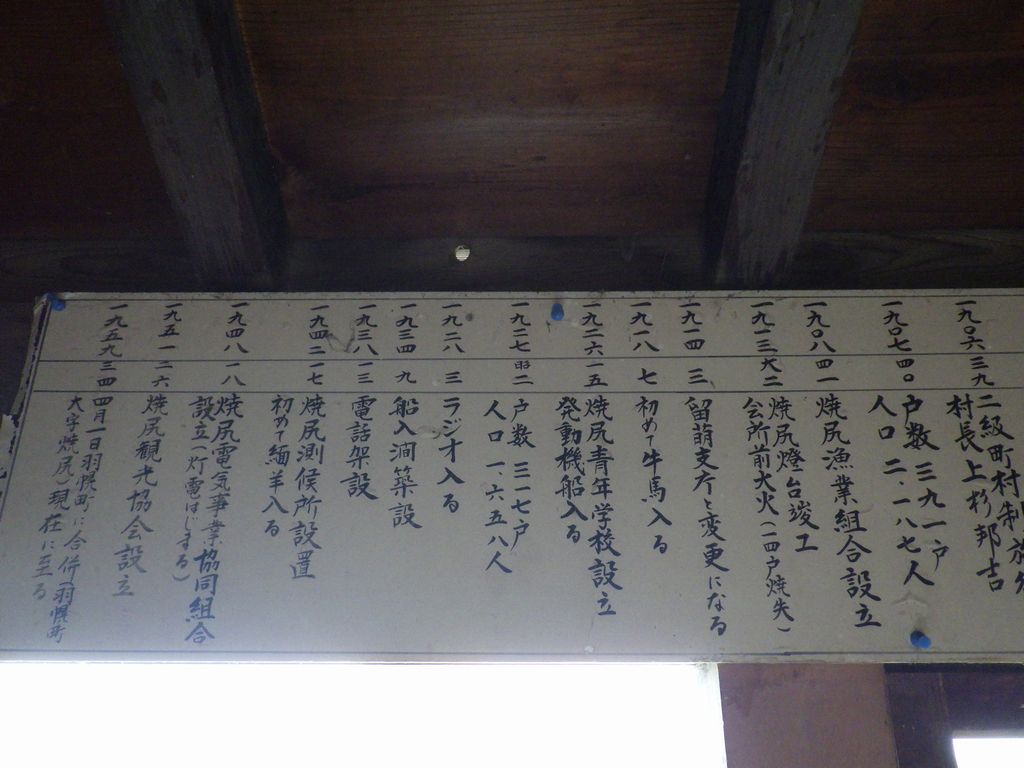 一九〇六 三九 二級町村制施行
村長上杉邦吉
一九〇七 四〇 戸数 三九一戸
人口 二、一八七人
一九〇八 四一 焼尻漁業組合設立
一九一三 大二 焼尻燈台竣工
会所前大火(一四戸焼失)
一九一四 三 留萌支庁と変更になる
一九一八 七 初めて牛馬入る
一九二六 一五 焼尻青年学校設立
発動機船入る
一九二七 昭二 戸数 三一七戸
人口 一、六五八人
一九二八 三 ラジオ入る
一九三四 九 船入澗築設
一九三八 一三 電話架設
一九四二 一七 焼尻測候所設置
初めて緬羊入る
一九四八 一八 焼尻電気事業協同組合
設立(灯電はじまる)
一九五一 二六 焼尻観光協会設立
一九五九 三四 四月一日羽幌町に合併(羽幌町
大字焼尻)現在に至る